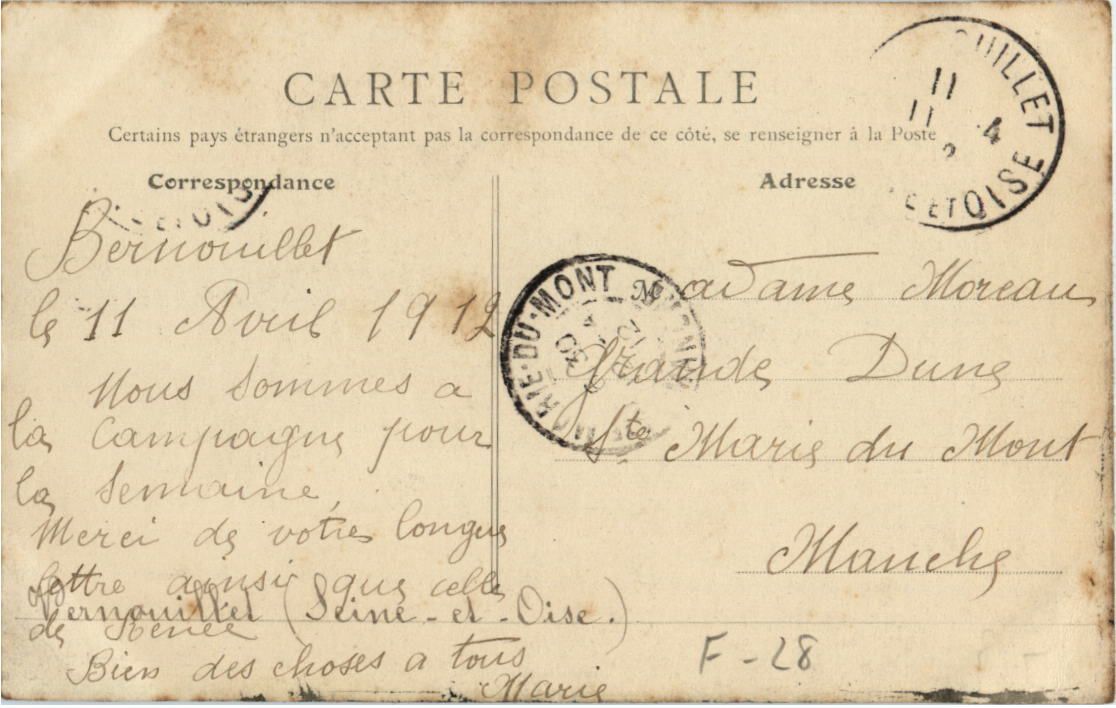 CARTE POSTALE
Certains pays étrangers n'acceptant pas la correspondance de ce côté, se renseigner à la Poste
Correspondance
Adresse
OUILLET
11
11 4
ET OISE
Bernouillet
le 11 Avril 1912
Nous sommes a
la campagne pour
la semaine,
Merci de votre longue
lettre ainsi que celle
de Renée
Bien des choses a tous
Marie
Vernouillet (Seine-et-Oise.)
DU-MONT
Madame Moreau
Grande Dune
Ste Marie du Mont
Manche
F-28